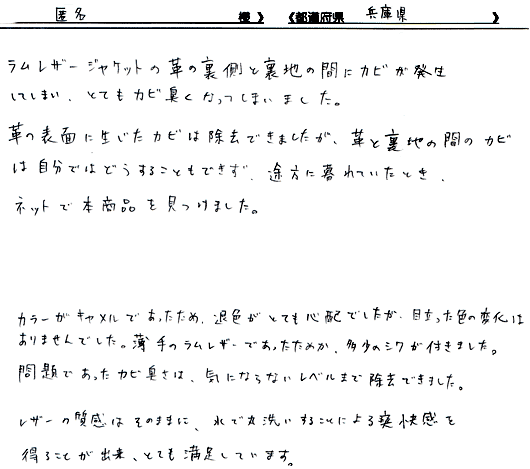 匿名 様》 《都道府県 兵庫県 》
ラムレザージャケットの革の裏側と裏地の間にカビが発生
してしまい、とてもカビ臭くなってしまいました。
革の表面に生じたカビは除去できましたが、革と裏地の間のカビ
は自分ではどうすることもできず、途方に暮れていたとき、
ネットで本商品を見つけました。
カラーがキャメルであったため、退色がとても心配でしたが、目立った色の変化は
ありませんでした。薄手のラムレザーであったためか、多少のシワが付きました。
問題であったカビ臭さは、気にならないレベルまで除去できました。
レザーの質感はそのままに、水で丸洗いすることによる爽快感を
得ることが出来、とても満足しています。